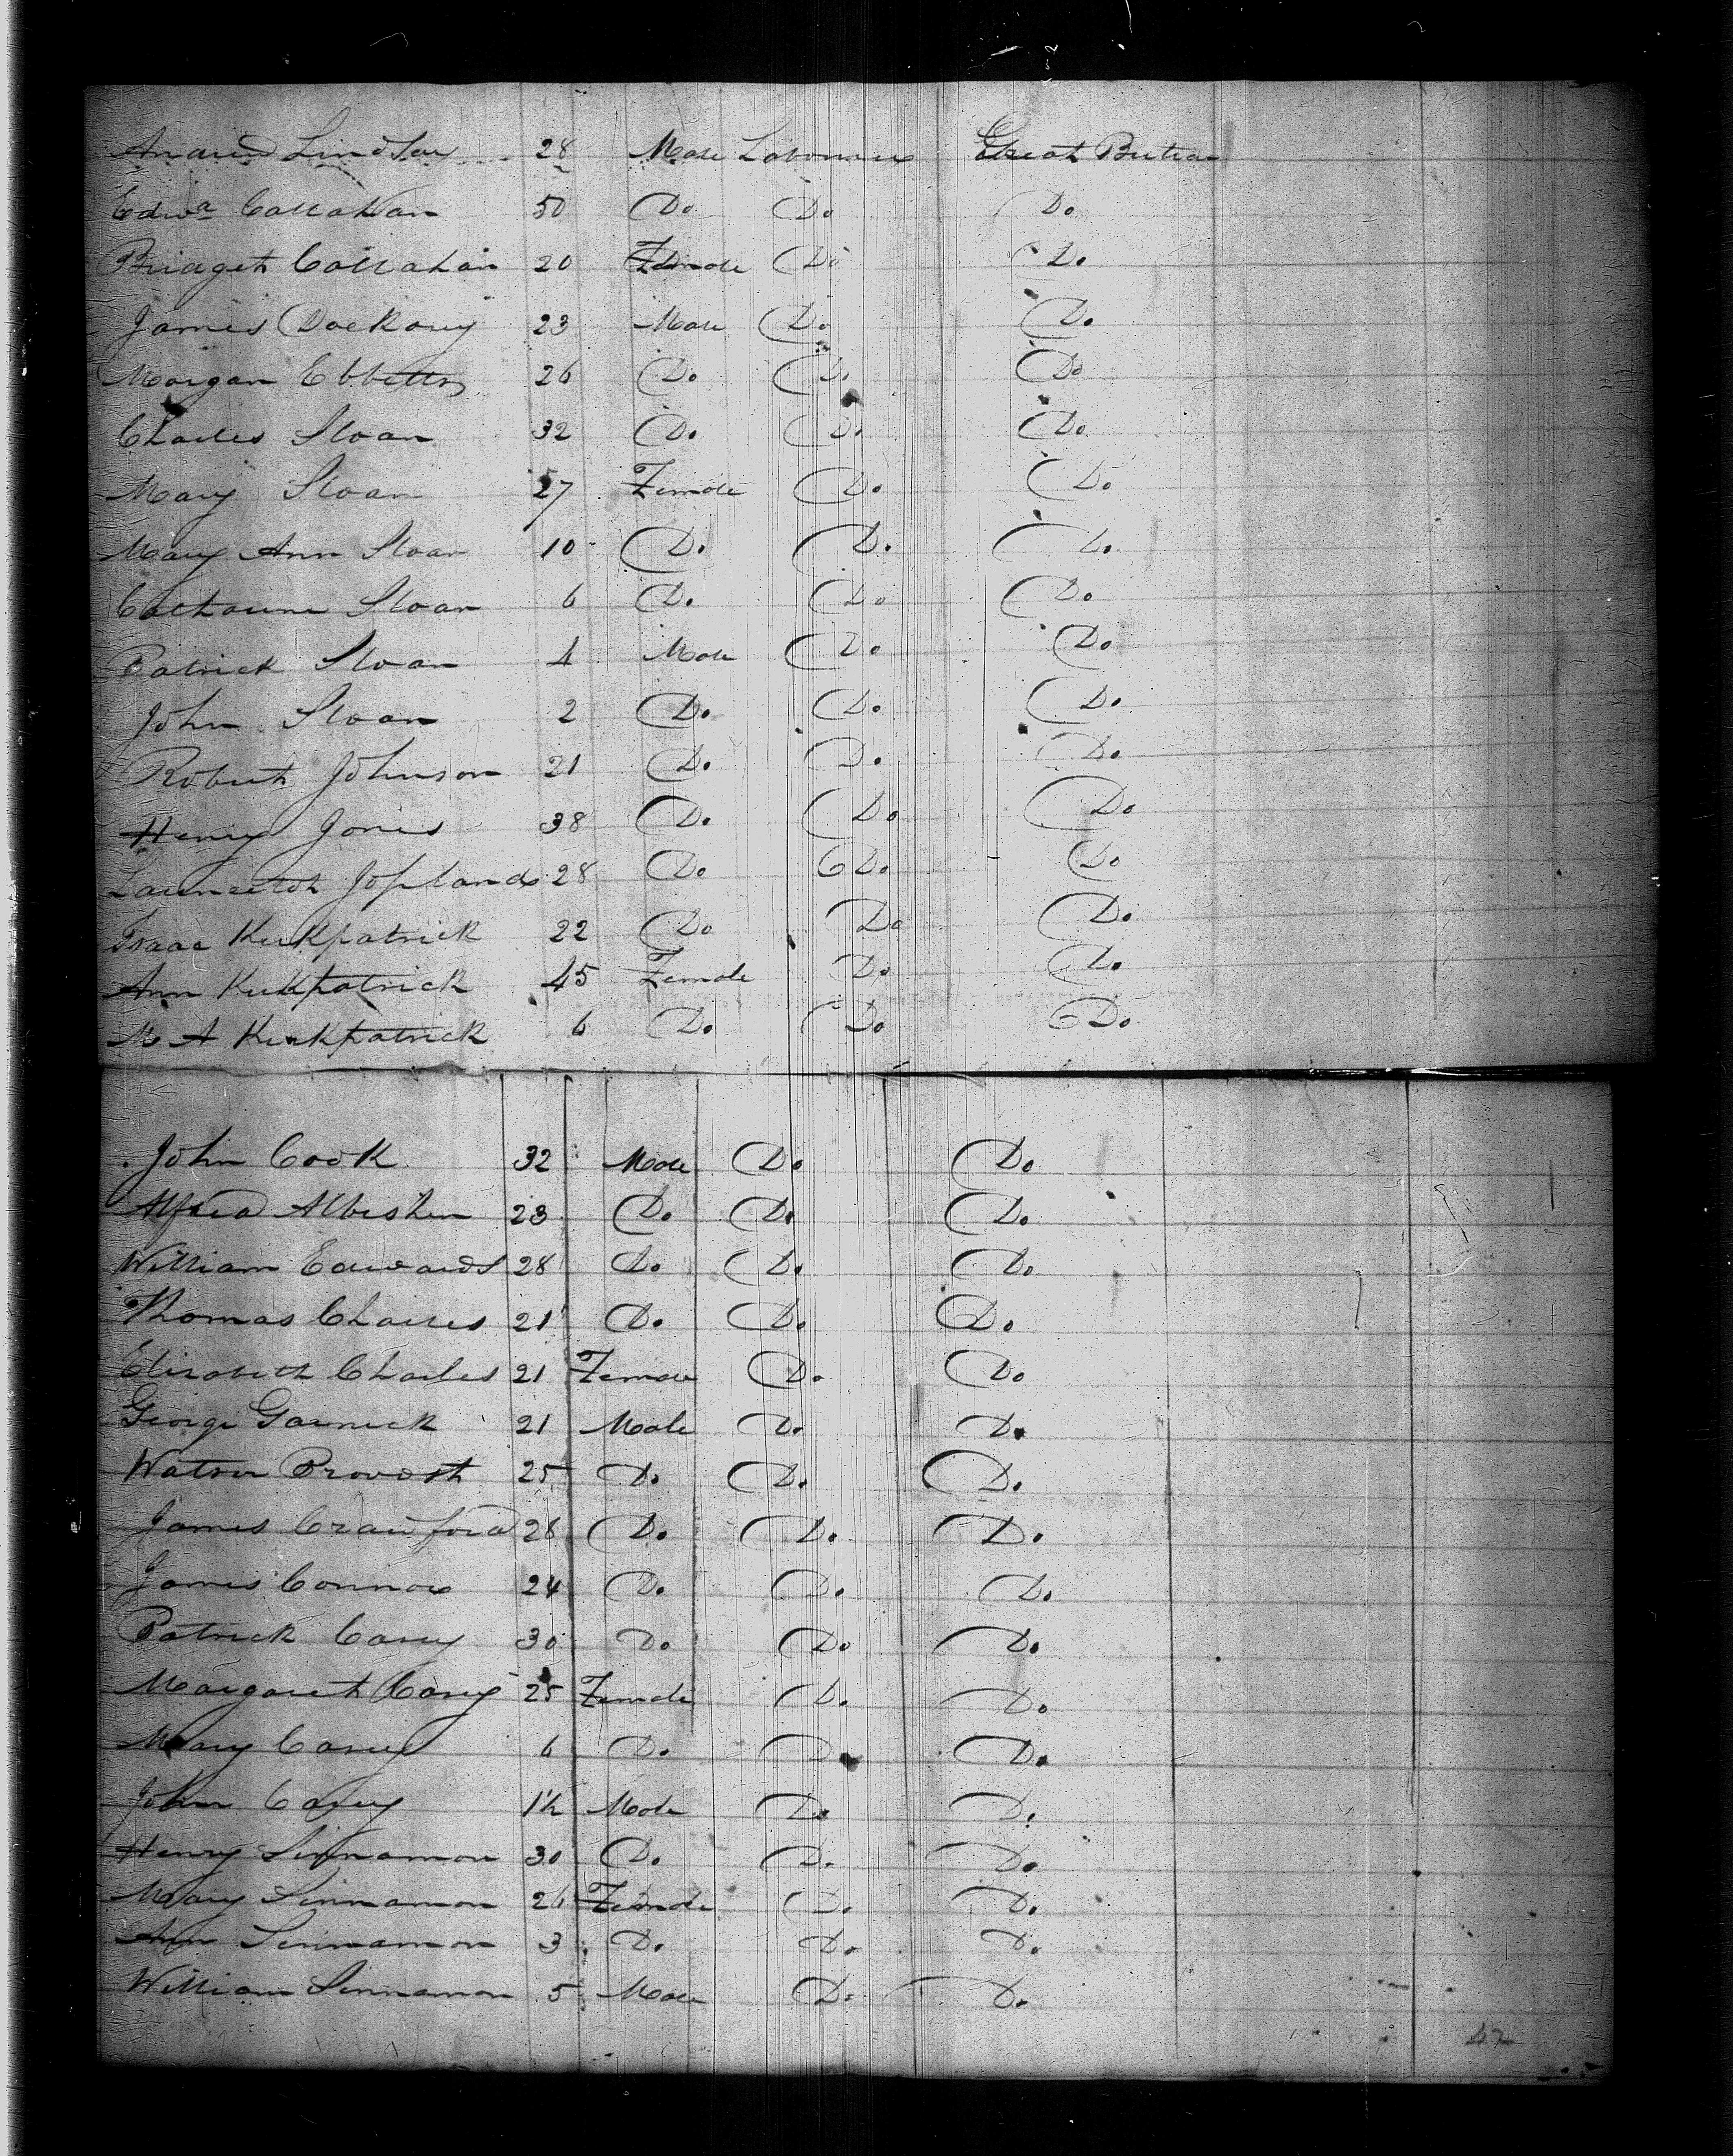 Lindsay 28 Male Labourers Great Britain
Edwd Callahan 50 Do Do Do
Bridget Callahan 20 Female Do Do
James Dockary 23 Male Do Do
Morgan Ebbetts 26 Do Do Do
Charles Sloan 32 Do Do Do
Mary Sloan 27 Female Do Do
Mary Ann Sloan 10 Do Do Do
Catharine Sloan 6 Do Do Do
Patrick Sloan 4 Male Do Do
John Sloan 2 Do Do Do
Robert Johnson 21 Do Do Do
Henry Jones 38 Do Do Do
Jopland 28 Do Do Do
Isaac Kirkpatrick 22 Do Do Do
Ann Kirkpatrick 45 Female Do Do
M A Kirkpatrick 6 Do Do Do
John Cook 32 Male Do Do
Alfred 23 Do Do Do
William Edwards 28 Do Do Do
Thomas Charles 21 Do Do Do
Elizabeth Charles 21 Female Do Do
George 21 Male Do Do
Watson Provost 25 Do Do Do
James Crawford 28 Do Do Do
James Connor 24 Do Do Do
Patrick Casey 30 Do Do Do
Margaret Casey 25 Female Do Do
Mary Casey 6 Do Do Do
John Casey Male Do Do
Henry Sinnamon 30 Do Do Do
Mary Sinnamon 26 Female Do Do
Ann Sinnamon 3 Do Do Do
William Sinnamon 5 Male Do Do
47